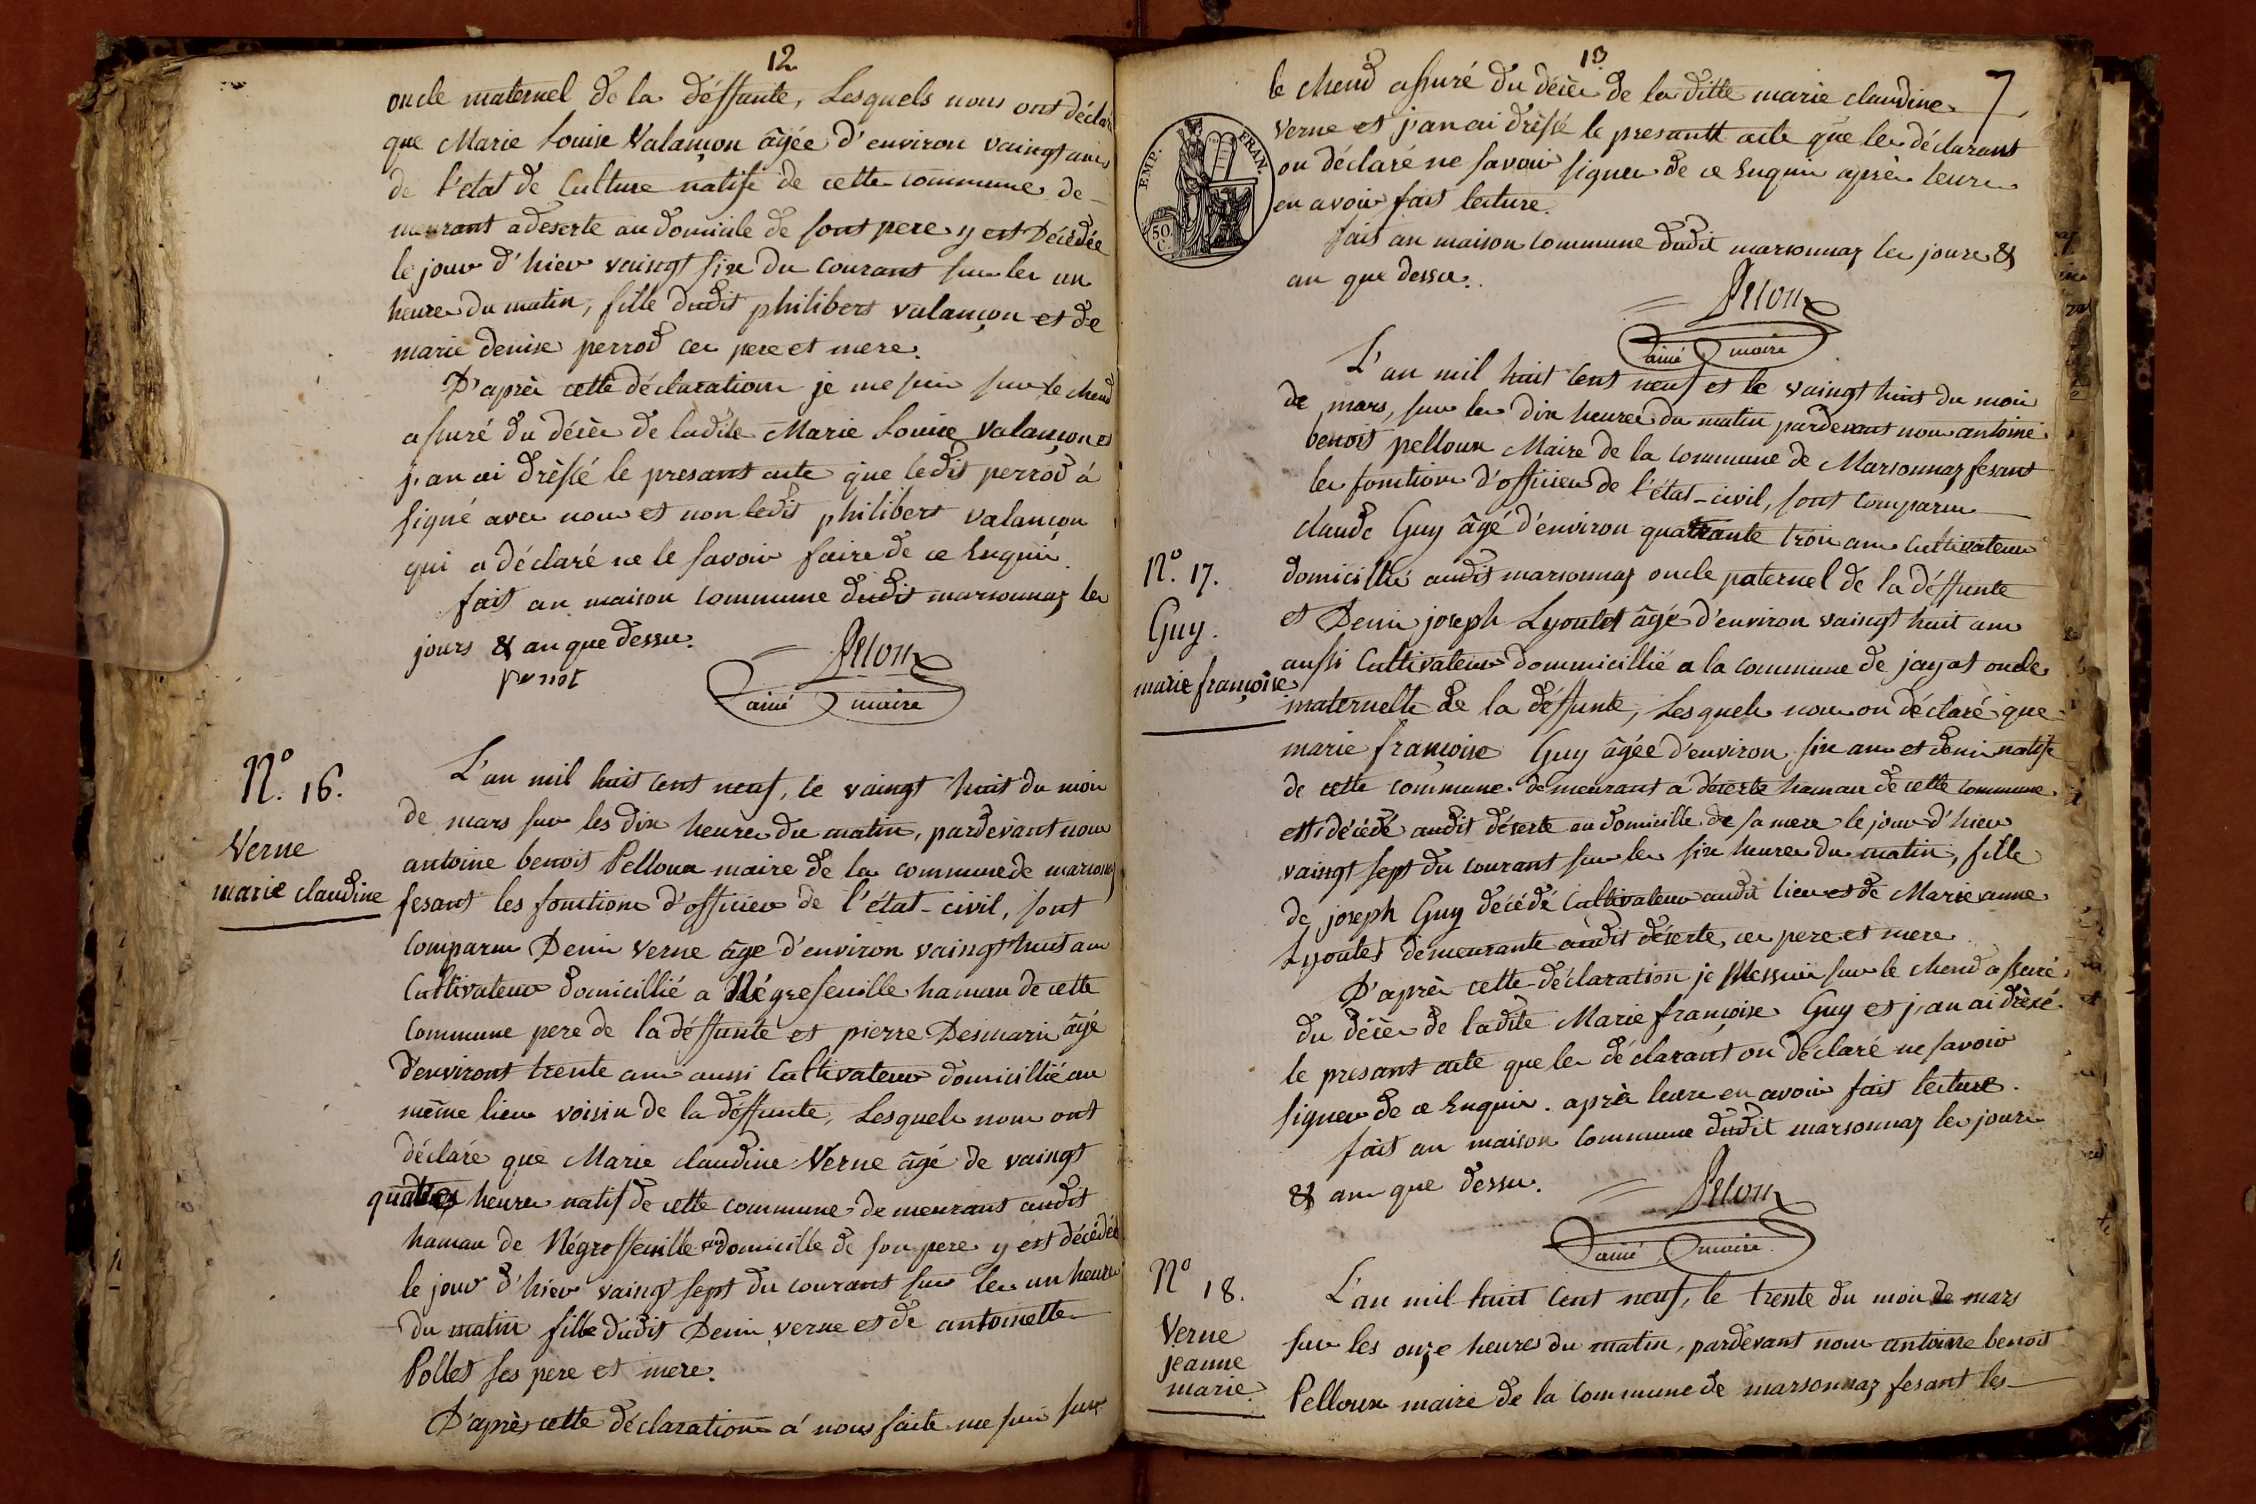 12
oncle maternel de la déffunte, Lesquels nous ont déclaré
que Marie Louise Valançon âgée d'environ vaingt ans
de l'état de Culture natife de cette commune de-
meurant adeserte au domicile de sont pere y est Décédée
le jour d'hier vaingt six du courant sur les un
heure du matin, fille dudit philibert valançon et de
marie denise perrod ces pere et mere.
D'après cette déclaration je me suis sur le chend
assuré du décès de ladite Marie Louise Valançon et
j'an ai drèssé le presant acte que ledit perrod à
signé avec nous et non ledit philibert valançon
qui a déclaré ne le savoir faire de ce Enquis.
fait an maison commune dudit marsonnaz les
jours & an que dessus.
perrot
Pelloux
ainé maire
N.º 16.
Verne
marie claudine
L'an mil huit cent neuf, le vaingt huit du mois
de mars sur les dix heures du matin, pardevant nous
antoine benoit Pelloux maire de la commune de marsonnaz
fesant les fonctions d'officier de l'état-civil, sont
Comparus Denis Verne âge d'environ vaingt huit ans
Cultivateur domicillié a Négrefeuille hamau de cette
Commune pere de la déffunte et pierre Desmaris âgé
d'environt trente ans aussi Cultivateur domicillié au
même lieu voisin de la déffunte, Lesquels nous ont
déclaré que Marie claudine Verne âgé de vaingt
quatres heures natif de cette commune demeurant audit
hamau de Négreffeuille au domicille de son pere y est décédée
le jour d'hier vaingt sept du courant sur les un heure
du matin fille dudit Denis Verne et de antoinette
Pollet ses pere et mere.
D'après cette déclaration à nous faite me suis sur
13
7
le chend assuré du décès de la ditte marie claudine
Verne et j'an ai drèssé le presantt acte que les déclarant
on déclaré ne savoir signer de ce Enquis après leurs
en avoir fait lecture.
EMP. FRAN.
50. C.
fait an maison commune dudit marsonnaz les jours &
an que dessus.
Pelloux
ainé maire
L'an mil huit cent neuf et le vaingt huit du mois
de mars, sur les dix heures du matin pardevant nous antoine
benoit pelloux Maire de la commune de Marsonnaz fesant
les fonctions d'officier de l'état-civil, sont comparus
claude Guy âgé d'environ quatrante trois ans Cultivateur
N.º 17.
Guy.
marie françoise
domicillié audit marsonnaz oncle paternel de la déffunte
et Denis joseph Lyoutet âgé d'environ vaingt huit ans
aussi Cultivateur dommicillié a la commune de jayat oncle
maternelle de la déffunte, Lesquels nous on déclaré que
marie françoise Guy âgée d'environ six ans et demi natife
de cette commune demeurant a déserte hamau de cette commune
est décédé audit déserte au domicille de sa mere le jour d'hier
vaingt sept du courant sur les six heures du matin, fille
de joseph Guy décédé Cultivateur audit lieu et de Marie anne
Lyoutet demeurante audit déserte, ces pere et mere
D'après cette déclaration je Messuis sur le chend assuré
du décès de ladite Marie françoise Guy et j'an ai drèsé
le presant acte que les déclarant on déclaré ne savoir
signer de ce Enquis. après leurs en avoir fait lecture.
fait an maison commune dudit marsonnaz les jours
& an que dessus.
Pelloux
ainé maire
N.º 18.
Verne
jeanne
marie
L'an mil huit cent neuf, le trente du mois de mars
sur les onze heures du matin, pardevant nous antoine benoit
Pelloux maire de la commune de marsonnaz fesant les